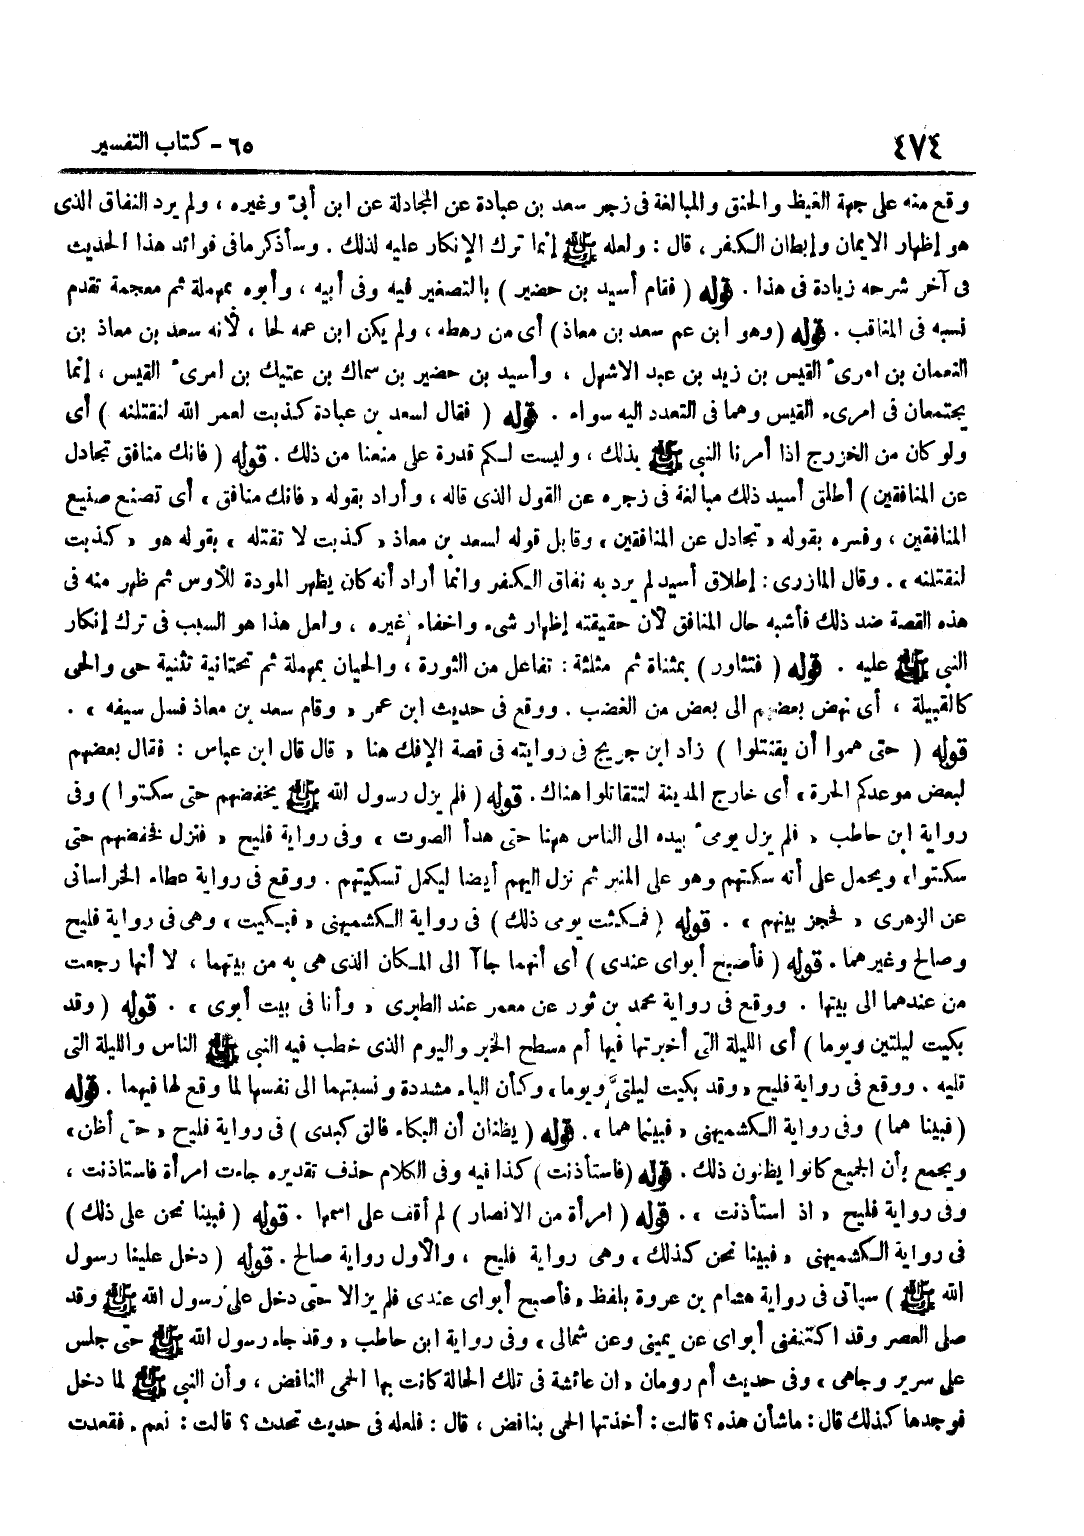 ٤٧٤
٦٥ - كتاب التفسير
وقع منه على جهة الغيظ والحنق والمبالغة فى زجر سعد بن عبادة عن المجادلة عن ابن أبىّ وغيره ، ولم يرد النفاق الذى
هو إظهار الايمان وإبطان الكفر ، قال : ولعله ﷺ إنما ترك الإنكار عليه لذلك . وسأذكر مافى فوائد هذا الحديث
فى آخر شرحه زيادة فى هذا . قوله ( فقام أسيد بن حضير ) بالتصغير فيه وفى أبيه ، وأبوه بمهملة ثم معجمة تقدم
نسبه فى المناقب . قوله ( وهو ابن عم سعد بن معاذ ) أى من رهطه ، ولم يكن ابن عمه لحا ، لأنه سعد بن معاذ بن
النعمان بن امرىء القيس بن زيد بن عبد الاشهل ، وأسيد بن حضير بن سماك بن عتيك بن امرىء القيس ، إنما
يجتمعان فى امرىء القيس وهما فى التعدد اليه سواء . قوله ( فقال لسعد بن عبادة كذبت لعمر الله لنقتلنه ) أى
ولو كان من الخزرج اذا أمرنا النبى ﷺ بذلك ، وليست لكم قدرة على منعنا من ذلك . قوله ( فانك منافق تجادل
عن المنافقين ) أطلق أسيد ذلك مبالغة فى زجره عن القول الذى قاله ، وأراد بقوله « فانك منافق » أى تصنع صنيع
المنافقين ، وفسره بقوله « تجادل عن المنافقين » وقابل قوله لسعد بن معاذ « كذبت لا تقتله » بقوله هو « كذبت
لنقتلنه » . وقال المازرى : إطلاق أسيد لم يرد به نفاق الكفر وانما أراد أنه كان يظهر المودة للأوس ثم ظهر منه فى
هذه القصة ضد ذلك فأشبه حال المنافق لأن حقيقته إظهار شىء واخفاء غيره ، ولعل هذا هو السبب فى ترك إنكار
النبى ﷺ عليه . قوله ( فتثاور ) بمثناة ثم مثلثة : تفاعل من الثورة ، والحيان بمهملة ثم تحتانية تثنية حى والحى
كالقبيلة ، أى نهض بعضهم الى بعض من الغضب . ووقع فى حديث ابن عمر « وقام سعد بن معاذ فسل سيفه » .
قوله ( حتى هموا أن يقتتلوا ) زاد ابن جريج فى روايته فى قصة الإفك هنا « قال قال ابن عباس : فقال بعضهم
لبعض موعدكم الحرة » أى خارج المدينة لتتقاتلوا هناك . قوله ( فلم يزل رسول الله ﷺ يخفضهم حتى سكتوا ) وفى
رواية ابن حاطب « فلم يزل يومىء بيده الى الناس ههنا حتى هدأ الصوت » وفى رواية فليح « فنزل فخفضهم حتى
سكتوا » ويحمل على أنه سكتهم وهو على المنبر ثم نزل اليهم أيضا ليكمل تسكيتهم . ووقع فى رواية عطاء الخراسانى
عن الزهرى « فحجز بينهم » . قوله ( فمكثت يومى ذلك ) فى رواية الكشميهنى « فبكيت » وهى فى رواية فليح
وصالح وغيرهما . قوله ( فأصبح أبواى عندى ) أى أنهما جاآ الى المكان الذى هى به من بيتهما ، لا أنها رجعت
من عندهما الى بيتها . ووقع فى رواية محمد بن ثور عن معمر عند الطبرى « وأنا فى بيت أبوى » . قوله ( وقد
بكيت ليلتين ويوما ) أى الليلة التى أخبرتها فيها أم مسطح الخبر واليوم الذى خطب فيه النبى ﷺ الناس والليلة التى
تليه . ووقع فى رواية فليح « وقد بكيت ليلتىّ ويوما » وكأن الياء مشددة ونسبتهما الى نفسها لما وقع لها فيهما . قوله
( فبينا هما ) وفى رواية الكشميهنى « فبينما هما » . قوله ( يظنان أن البكاء فالق كبدى ) فى رواية فليح « حتى أظن »
ويجمع بأن الجميع كانوا يظنون ذلك . قوله ( فاستأذنت ) كذا فيه وفى الكلام حذف تقديره جاءت امرأة فاستاذنت ،
وفى رواية فليح « اذ استأذنت » . قوله ( امرأة من الانصار ) لم أقف على اسمها . قوله ( فبينا نحن على ذلك )
فى رواية الكشميهنى « فبينا نحن كذلك » وهى رواية فليح ، والأول رواية صالح . قوله ( دخل علينا رسول
الله ﷺ ) سيأتى فى رواية هشام بن عروة بلفظ « فأصبح أبواى عندى فلم يزالا حتى دخل على رسول الله ﷺ وقد
صلى العصر وقد اكتنفنى أبواى عن يمينى وعن شمالى » وفى رواية ابن حاطب « وقد جاء رسول الله ﷺ حتى جلس
على سرير وجاهى » وفى حديث أم رومان « ان عائشة فى تلك الحالة كانت بها الحمى النافض ، وأن النبى ﷺ لما دخل
فوجدها كذلك قال : ماشأن هذه ؟ قالت : أخذتها الحمى بنافض ، قال : فلعله فى حديث تحدث ؟ قالت : نعم . فقعدت